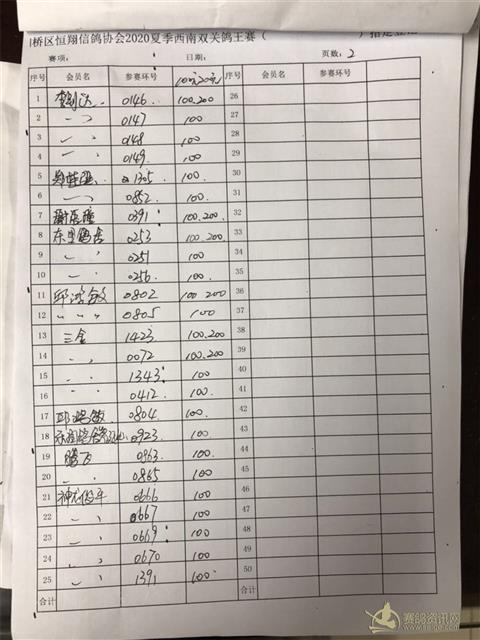 桥区恒翔信鸽协会2020夏季西南双关鸽王赛（ ）指定
赛项： 日期： 页数：2
序号 会员名 参赛环号 100元 200元 序号 会员名 参赛环号
1 0146 100.200 26
2 〃 0147 100 27
3 〃 0148 100 28
4 〃 0149 100 29
5 01305 100 30
6 〃 0852 100 31
7 0391 100.200 32
8 东里鸽舍 0253 100.200 33
9 〃 0251 100 34
10 〃 0256 100 35
11 邱鸿敏 0802 100 200 36
12 〃 〃 〃 0805 100 37
13 三金 1423 100.200 38
14 〃 0072 100.200 39
15 〃 1343 100 40
16 〃 0412 100 41
17 邱鸿敏 0804 100 42
18 0923 100 43
19 腾飞 0963 100 44
20 〃 0865 100 45
21 0666 100 46
22 〃 0667 100 47
23 〃 0669 100 48
24 〃 0670 100 49
25 〃 1391 100 50
合计 合计
赛鸽资讯网